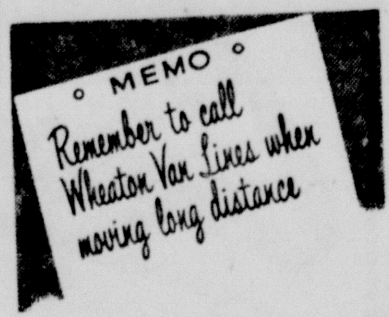 MEMO
Remember to call
Wheaton Van Lines when
moving long distance